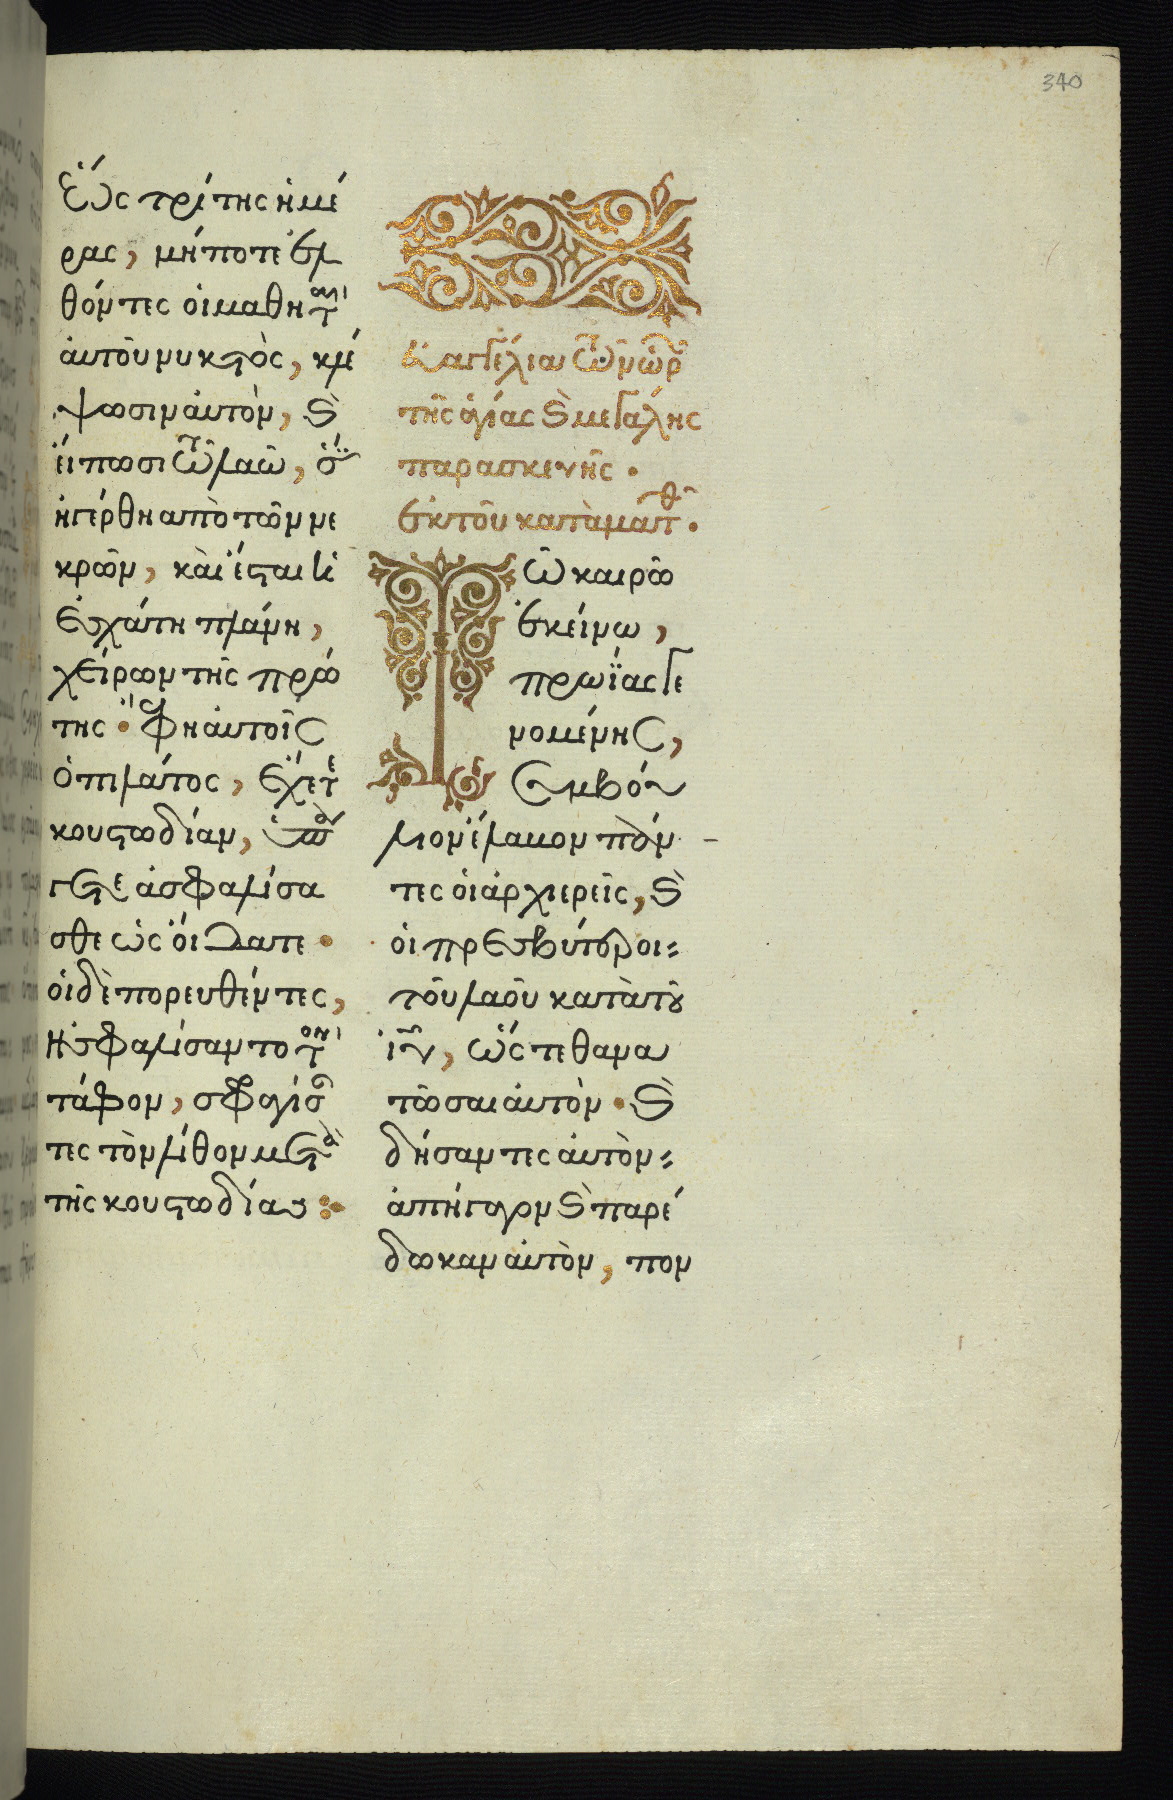 340
ἕως τρίτης ἡμέ
ρας, μήποτε ἐλ
θόντες οἱ μαθητ(αι)
ἀυτοῦ νυκτὸς, κλέ
ψωσιν ἀυτὸν, ϗ
ἔιπωσι τῶ λαῶ, ὅτι
ἠγέρθη απὸ τῶν νε
κρῶν, κὰι ἔςται ἡ
ἐσχάτη πλάνη,
χείρων τῆς πρώ
της · ἔφη ἀυτοῖς
ὁ πιλάτος, ἔχετε
κουςωδίαν, ὑπά
γετε ἀσφαλίσα
σθε ὡς ὄιδατε ·
ὁι δὲ πορευθέντες,
ἠσφαλίσαντο τον
τάφον, σφραγίσαν
τες τὸν λίθον μετὰ
τῆς κουςωδίας :·
Ευαγγέλια τῶν ὡρῶν
τῆς ἁγίας ϗ μεγάλης
παρασκευῆς ·
ἐκ τοῦ κατὰ ματθ ·
Τῶ καιρῶ
ἐκείνω,
πρωΐας γε
νομένης,
συμβού
λιον ἔλαβον πάν
τες ὁι ἀρχιερεῖς, ϗ
ὁι πρεσβύτεροι
τοῦ λαοῦ κατὰ τοῦ
ιυ, ὥςτε θανα
τῶσαι ἀυτὸν · ϗ
δήσαντες ἀυτὸν
ἀπήγαγον ϗ παρέ
δωκαν ἀυτὸν, πον